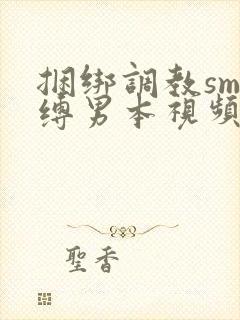 捆绑調教sm
缚男本視頻
聖香